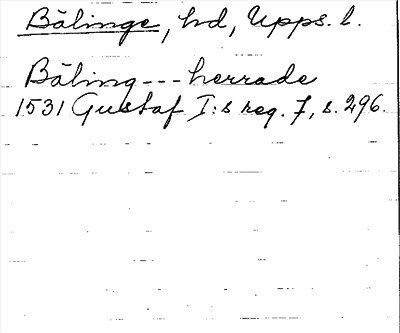 Bälinge, hd, Upps. l.
Bäling--- herrade
1531 Gustaf I:s reg. 7, s. 296.